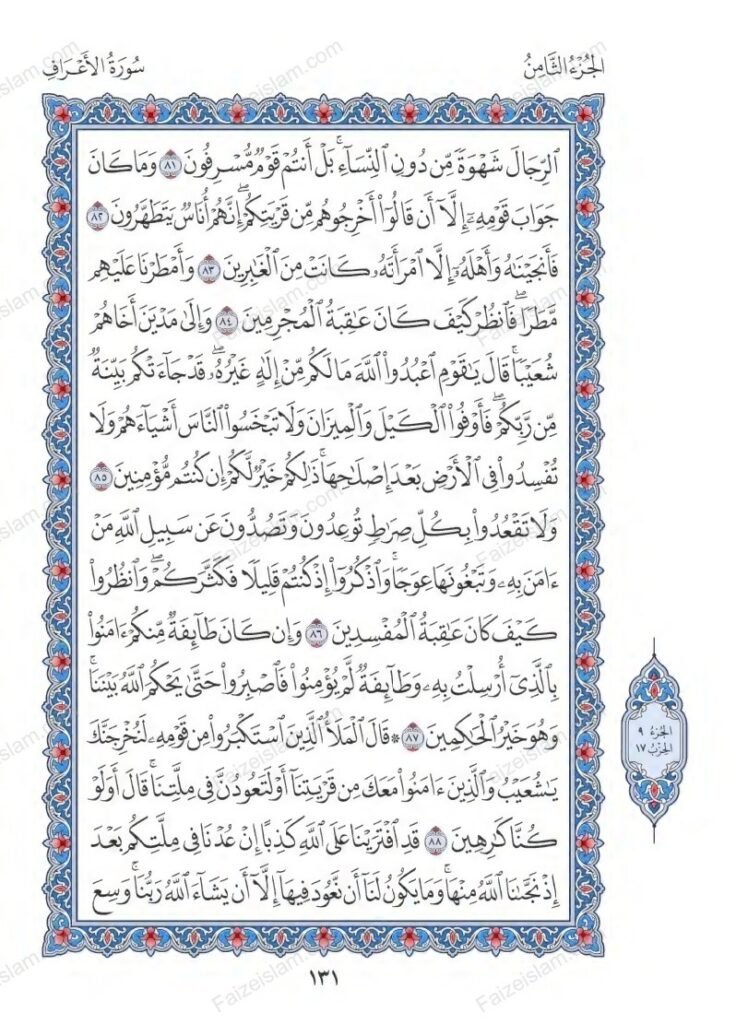 الجُزْءُ الثَّامِنُ
سُورَةُ الأَعْرَافِ
اَ۬لرِّجَالَ شَهْوَةً مِّن دُونِ اِ۬لنِّسَآءِۚ بَلْ أَنتُمْ قَوْمٌ مُّسْرِفُونَ ٨١ وَمَا كَانَ
جَوَابَ قَوْمِهِۦٓ إِلَّآ أَن قَالُوٓا۟ أَخْرِجُوهُم مِّن قَرْيَتِكُمْۖ إِنَّهُمْ أُنَاسٌ يَتَطَهَّرُونَ ٨٢
فَأَنجَيْنَٰهُ وَأَهْلَهُۥٓ إِلَّا اَ۪مْرَأَتَهُۥ كَانَتْ مِنَ اَ۬لْغَٰبِرِينَ ٨٣ وَأَمْطَرْنَا عَلَيْهِم
مَّطَرًاۖ فَانظُرْ كَيْفَ كَانَ عَٰقِبَةُ اُ۬لْمُجْرِمِينَ ٨٤ وَإِلَىٰ مَدْيَنَ أَخَاهُمْ
شُعَيْبًاۚ قَالَ يَٰقَوْمِ اِ۟عْبُدُوا۟ اُ۬للَّهَ مَا لَكُم مِّنْ إِلَٰهٍ غَيْرُهُۥۖ قَدْ جَآءَتْكُم بَيِّنَةٌ
مِّن رَّبِّكُمْۖ فَأَوْفُوا۟ اُ۬لْكَيْلَ وَالْمِيزَانَ وَلَا تَبْخَسُوا۟ اُ۬لنَّاسَ أَشْيَآءَهُمْ وَلَا
تُفْسِدُوا۟ فِى اِ۬لْأَرْضِ بَعْدَ إِصْلَٰحِهَاۚ ذَٰلِكُمْ خَيْرٌ لَّكُمْ إِن كُنتُم مُّؤْمِنِينَ ٨٥
وَلَا تَقْعُدُوا۟ بِكُلِّ صِرَٰطٍ تُوعِدُونَ وَتَصُدُّونَ عَن سَبِيلِ اِ۬للَّهِ مَنْ
ءَامَنَ بِهِۦ وَتَبْغُونَهَا عِوَجًاۚ وَاذْكُرُوٓا۟ إِذْ كُنتُمْ قَلِيلًا فَكَثَّرَكُمْۖ وَانظُرُوا۟
كَيْفَ كَانَ عَٰقِبَةُ اُ۬لْمُفْسِدِينَ ٨٦ وَإِن كَانَ طَآئِفَةٌ مِّنكُمْ ءَامَنُوا۟
بِالَّذِىٓ أُرْسِلْتُ بِهِۦ وَطَآئِفَةٌ لَّمْ يُؤْمِنُوا۟ فَاصْبِرُوا۟ حَتَّىٰ يَحْكُمَ اَ۬للَّهُ بَيْنَنَاۚ
وَهُوَ خَيْرُ اُ۬لْحَٰكِمِينَ ٨٧ * قَالَ اَ۬لْمَلَأُ اُ۬لَّذِينَ اَ۪سْتَكْبَرُوا۟ مِن قَوْمِهِۦ لَنُخْرِجَنَّكَ
يَٰشُعَيْبُ وَالَّذِينَ ءَامَنُوا۟ مَعَكَ مِن قَرْيَتِنَآ أَوْ لَتَعُودُنَّ فِى مِلَّتِنَاۚ قَالَ أَوَلَوْ
كُنَّا كَٰرِهِينَ ٨٨ قَدِ اِ۪فْتَرَيْنَا عَلَى اَ۬للَّهِ كَذِبًا إِنْ عُدْنَا فِى مِلَّتِكُم بَعْدَ
إِذْ نَجَّىٰنَا اَ۬للَّهُ مِنْهَاۚ وَمَا يَكُونُ لَنَآ أَن نَّعُودَ فِيهَآ إِلَّآ أَن يَشَآءَ اَ۬للَّهُ رَبُّنَاۚ وَسِعَ
الجُزْءُ ٩
الحِزْبُ ١٧
١٣١
Faizeislam.com